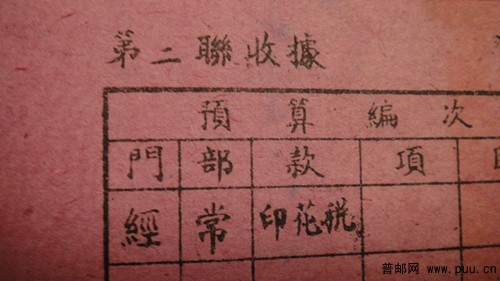 第二聯收據
預算編次
門部款項
經常印花税
普邮网 www.puu.cn